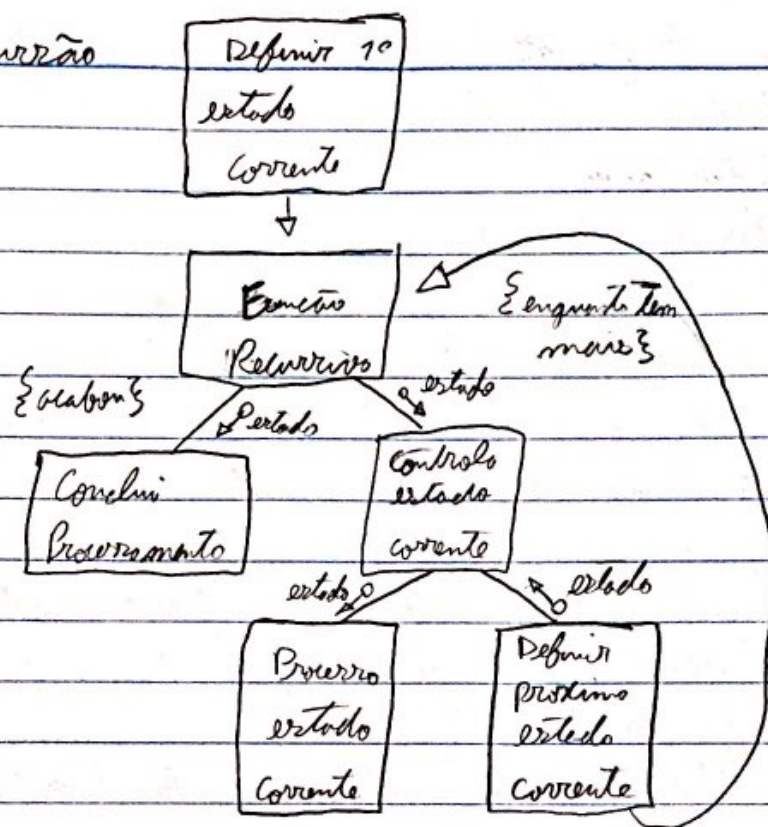 Definir 1º
estado
Corrente
Função
Recursiva
{enquanto tem
mais}
{acabou}
estado
estado
Conclui
Processamento
Controla
estado
corrente
estado
estado
Processa
estado
Corrente
Definir
próximo
estado
Corrente